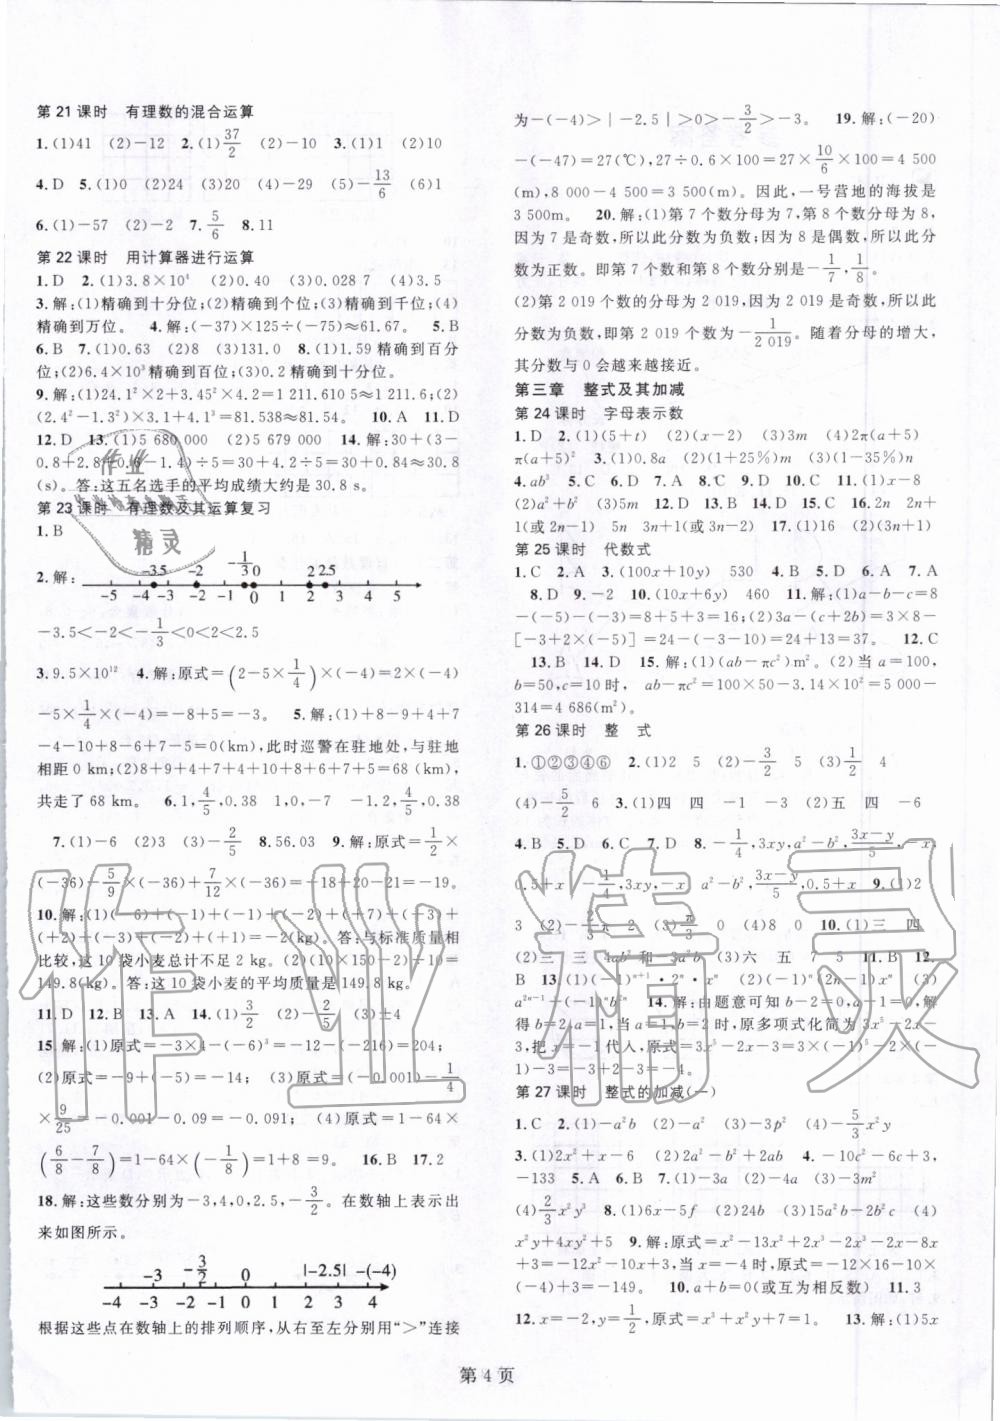 第21课时 有理数的混合运算
1.(1)41 (2)-12 2.(1)37/2 (2)-10 3.(1)1 (2)10
4.D 5.(1)0 (2)24 (3)20 (4)-29 (5)-13/6 (6)1
6.(1)-57 (2)-2 7.5/6 8.11
第22课时 用计算器进行运算
1.D 2.(1)3.8×10⁴ (2)0.40 (3)0.028 7 (4)3.5
3.解:(1)精确到十分位;(2)精确到个位;(3)精确到千位;(4)
精确到万位。 4.解:(-37)×125÷(-75)≈61.67。 5.B
6.B 7.(1)0.63 (2)8 (3)131.0 8.(1)1.59精确到百分
位;(2)6.4×10³精确到百位;(3)0.2精确到十分位。
9.解:(1)24.1²×2+3.45²×4.2=1 211.610 5≈1 211.6;(2)
(2.4²-1.3²)×3.1+4.1³=81.538≈81.54。 10.A 11.D
12.D 13.(1)5 680 000 (2)5 679 000 14.解:30+(3-
0.8+2.8+0.6-1.4)÷5=30+4.2÷5=30+0.84≈30.8
(s)。答:这五名选手的平均成绩大约是30.8 s。
第23课时 有理数及其运算复习
1.B
2.解: -3.5 -2 -1/3 0 2 2.5
-5 -4 -3 -2 -1 0 1 2 3 4 5
-3.5<-2<-1/3<0<2<2.5
3.9.5×10¹² 4.解:原式=(2-5×1/4)×(-4)=2×(-4)
-5×1/4×(-4)=-8+5=-3。 5.解:(1)+8-9+4+7
-2-10+18-3+7+5=
作业
精灵
4-10+8-6+7-5=0(km),此时巡警在驻地处,与驻地
相距0 km;(2)8+9+4+7+2+10+18+3+7+5=68(km),此时巡警
共走了68 km。 6.1,4/5,0.38 1,0,-7 -1.2,4/5,0.38
7.(1)-6 (2)3 (3)-2/5 8.56.03 9.解:原式=1/2×
(-36)-5/9×(-36)+7/12×(-36)=-18+20-21=-19。
10.解:(1)(-6)+(-1)+(-1)+(-2)+(+7)+(+3)+
(+2)+(-3)+(-2)+(+1)=-2(kg)。答:与标准质量相
比较,这10袋小麦总计不足2 kg。(2)(10×150-2)÷10=
149.8(kg)。答:这10袋小麦的平均质量是149.8 kg。
11.D 12.B 13.A 14.(1)3/2 (2)-2/5 (3)±4
15.解:(1)原式=-3×4-(-6)³=-12-(-216)=204;
(2)原式=-9+(-5)=-14; (3)原式=(-0.001)-1/4
×9/25=-0.001-0.09=-0.091; (4)原式=1-64×
(6/8-7/8)=1-64×(-1/8)=1+8=9。 16.B 17.2
18.解:这些数分别为-3,4,0,2.5,-3/2。在数轴上表示出
来如图所示。
-3 -3/2 0 |-2.5| -(-4)
-4 -3 -2 -1 0 1 2 3 4
根据这些点在数轴上的排列顺序,从右至左分别用“>”连接
为-(-4)>|-2.5|>0>-3/2>-3。 19.解:(-20)
-(-47)=27(℃),27÷0.6×100=27×10/6×100=4 500
(m),8 000-4 500=3 500(m)。因此,一号营地的海拔是
3 500m。 20.解:(1)第7个数分母为7,第8个数分母为8,
因为7是奇数,所以此分数为负数;因为8是偶数,所以此分
数为正数。即第7个数和第8个数分别是-1/7,1/8。
(2)第2 019个数的分母为2 019,因为2 019是奇数,所以此
分数为负数,即第2 019个数为-1/2 019。随着分母的增大,
其分数与0会越来越接近。
第三章 整式及其加减
第24课时 字母表示数
1.D 2.(1)(5+t) (2)(x-2) (3)3m (4)2π(a+5)
π(a+5)² 3.(1)0.8a (2)(1+25%)m (3)(1-15%)n
4.ab³ 5.C 6.C 7.D 8.C 9.D 10.C 11.(1)x-8
(2)a²+b² (3)5m 12.D 13.D 14.D 15.C 16.2n 2n+
1(或2n-1) 5n 3n+1(或3n+2) 17.(1)16 (2)(2n+1)
第25课时 代数式
1.C 2.A 3.(100x+10y) 530 4.B 5.D 6.A 7.A
8.D 9.-2 10.(10x+6y) 460 11.解:(1)a-b-c=8
-(-5)-(-3)=8+5+3=16;(2)3a-(c+2b)=3×8-
[-3+2×(-5)]=24-(-3-10)=24+13=37。 12.C
13.B 14.D 15.解:(1)(ab-πc²)m²。(2)当a=100,
b=50,c=10时, ab-πc²=100×50-3.14×10²=5 000-
314=4 686(m²)。
第26课时 整 式
1.①②③④⑥ 2.(1)2 5 (2)-3/2 5 (3)1/2 4
(4)-5/2 6 3.(1)四 四 -1 -3 (2)五 四 -6
4.B 5.D 6.C 7.D 8.-1/4,3xy,a²-b²,3x-y/5,-x,
0.5+x -1/4,3xy,-x a²-b²,3x-y/5,0.5+x 9.(1)2
3 (2)-2/3 2 (3)π/3 0 (4)8 0 10.(1)三 四
(2)三 三 4ab²和3a²b (3)六 五 7 5 11.B 12.
B 13.(1)(-1)ⁿ⁺¹·2ⁿ·xⁿ (2)(-1)ⁿ(2n-1)xⁿ (3)
a²ⁿ⁻¹+(-1)ⁿ 14.解:由题意可知b-2=0,a-1=0,解
得b=2,a=1,当a=1,b=2时,原多项式化简为3x⁵-2x-
3,把x=-1代入,原式=3×(-1)⁵-2×(-1)
-3=-3+2-3=-4。
第27课时 整式的加减(一)
1.C 2.(1)-a²b (2)-a² (3)-3p² (4)-5/3x²y
3.(1)2x²+x-6 (2)2a²-b²+2ab 4.-10c²-6c+3,
-133 5.A 6.D 7.(1)-3a (2)-a (3)-3m²
(4)2/3x²y³ 8.(1)6x-5f (2)24b (3)15a²b-2b²c (4)
x²y+4xy²+5 9.解:原式=x²-13x²+2x²-2x-8x
+3=-12x²-10x+3,当x=-4时,原式=-12×16-10×
(-4)+3=-149。 10.a+b=0(或互为相反数) 11.3
12.x=-2,y=1/2,原式=x³+x²y+7=1。 13.解:(1)5x
第4页